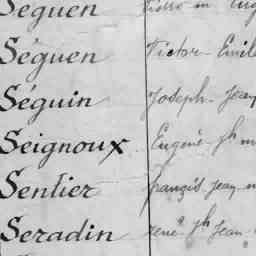 Séguen
Séguen Victor Emil
Séguin Joseph Jean
Seignoux Eugène Jh m
Sentier françois jean m
Seradin rené Jh Jean